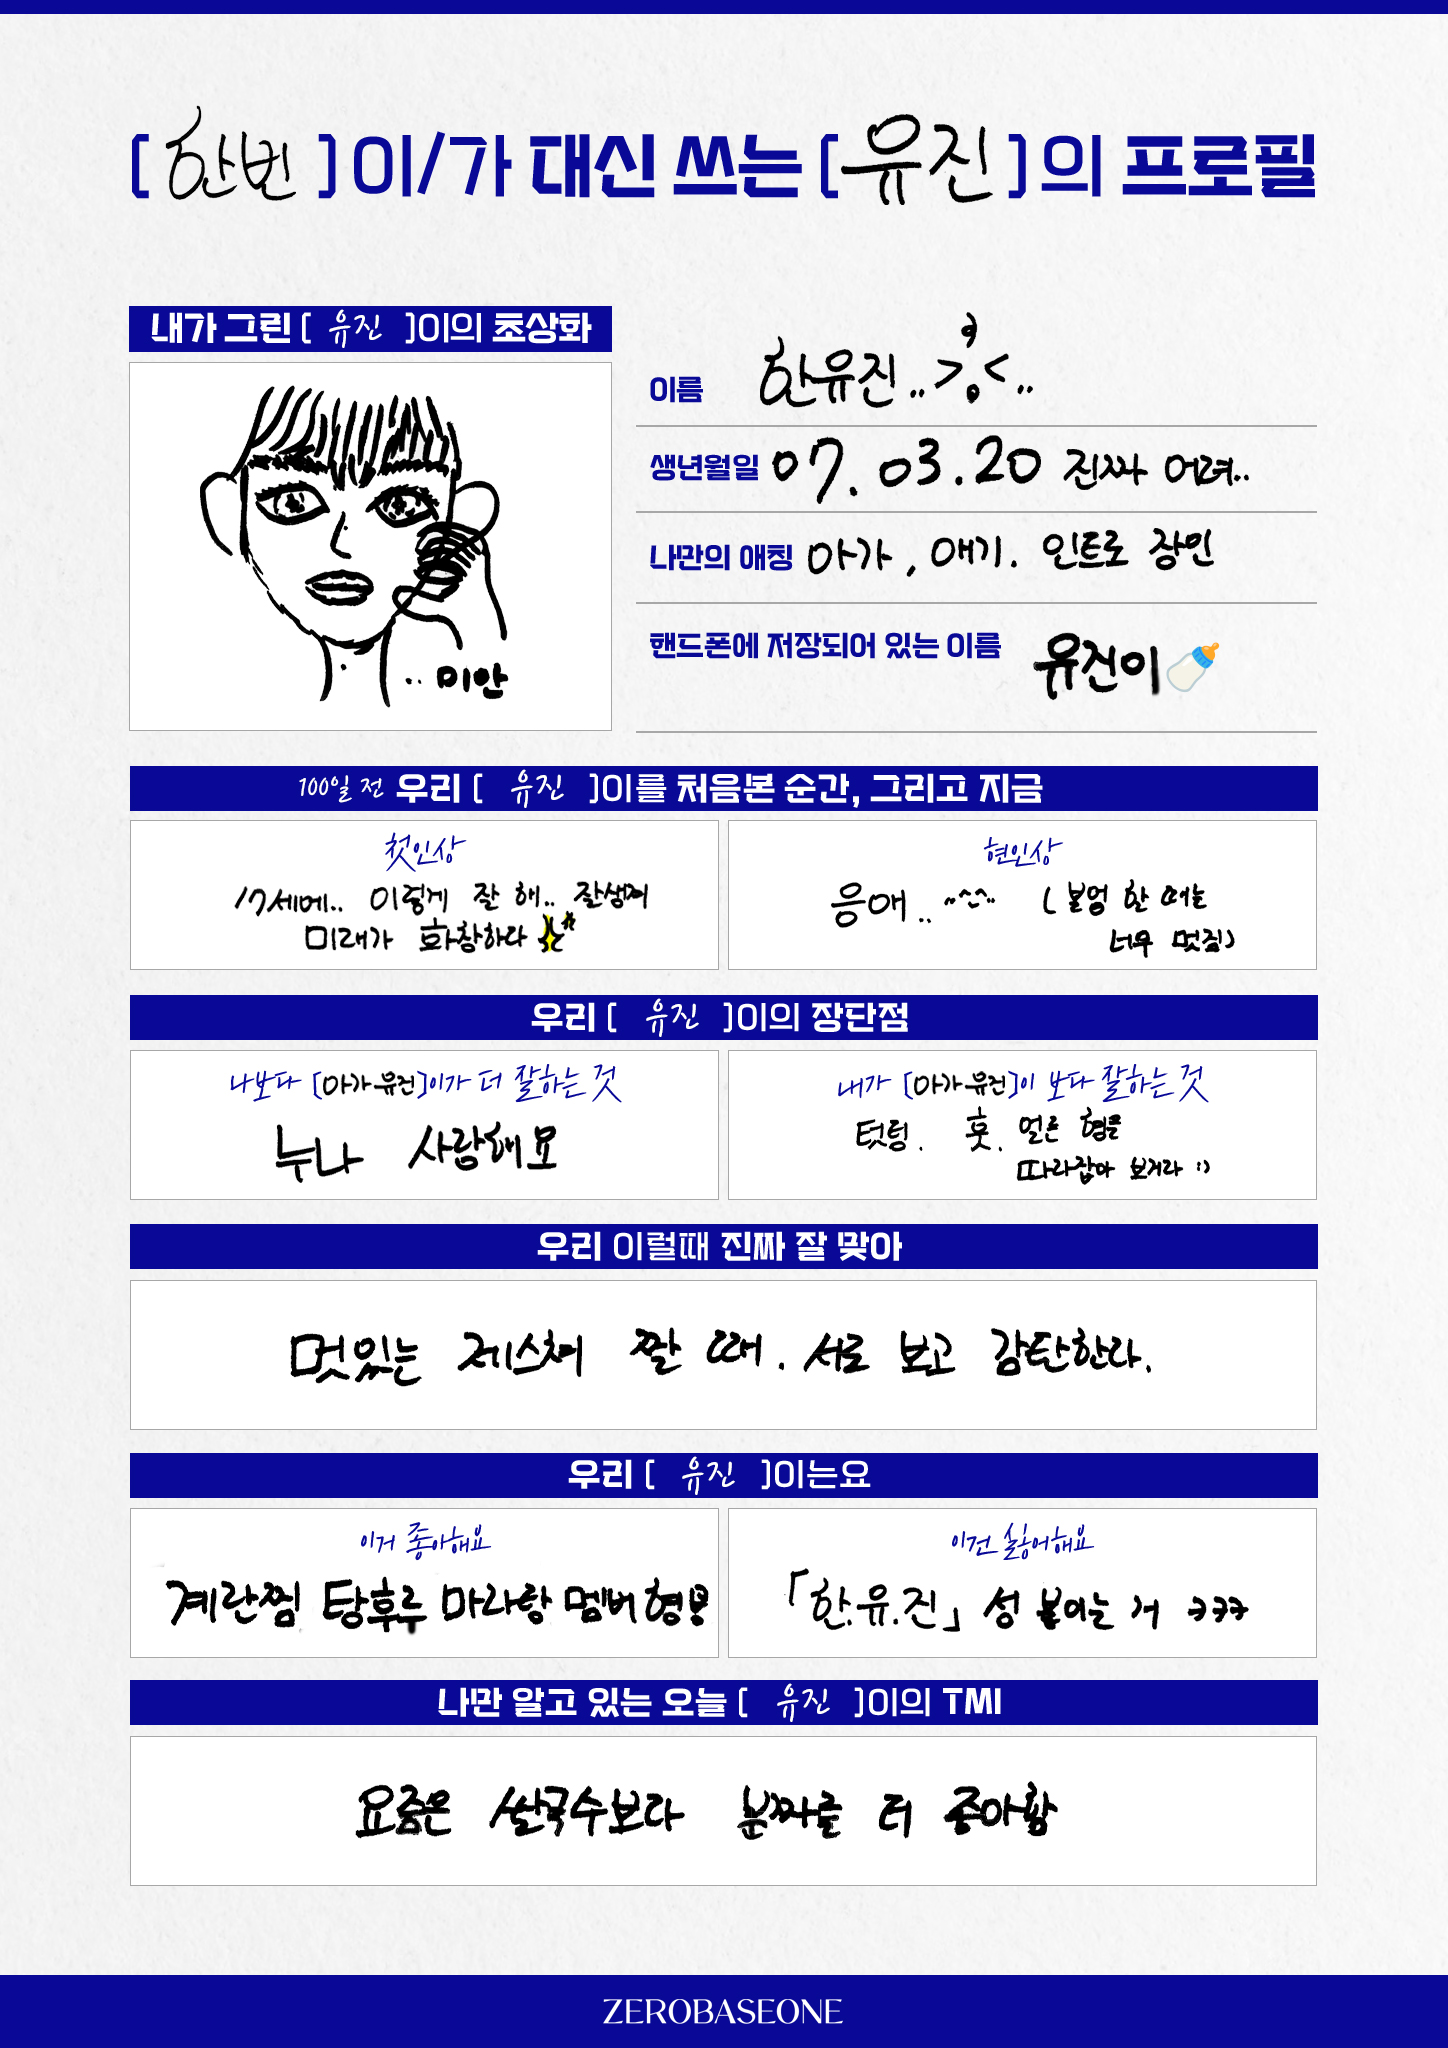 [ 한빈 ] 이/가 대신 쓰는 [ 유진 ] 의 프로필
내가 그린 [ 유진 ]이의 초상화
.. 미안
이름 한유진..><..
생년월일 07. 03.20 진짜 어려..
나만의 애칭 아가, 애기. 인트로 장인
핸드폰에 저장되어 있는 이름 유진이🍼
100일 전 우리 [ 유진 ]이를 처음본 순간, 그리고 지금
첫인상
17세메.. 이렇게 잘 해.. 잘생겨
미래가 화창하다
현인상
응애.. ~^^..
( 본업 할 때는
너무 멋짐)
우리 [ 유진 ]이의 장단점
나보다 [아가유진]이가 더 잘하는 것
누나 사랑해요
내가 [아가유진]이 보다 잘하는 것
텃팅. 훗. 얼른 형을
따라잡아 보거라 :)
우리 이럴때 진짜 잘 맞아
멋있는 제스쳐 짤 때. 서로 보고 감탄한다.
우리 [ 유진 ]이는요
이거 좋아해요
계란찜 탕후루 마라탕 멤버형들
이건 싫어해요
「한.유.진」 성 붙이는 거 ㅋㅋㅋ
나만 알고 있는 오늘 [ 유진 ]이의 TMI
요즘은 쌀국수보다 분짜를 더 좋아함
ZEROBASEONE